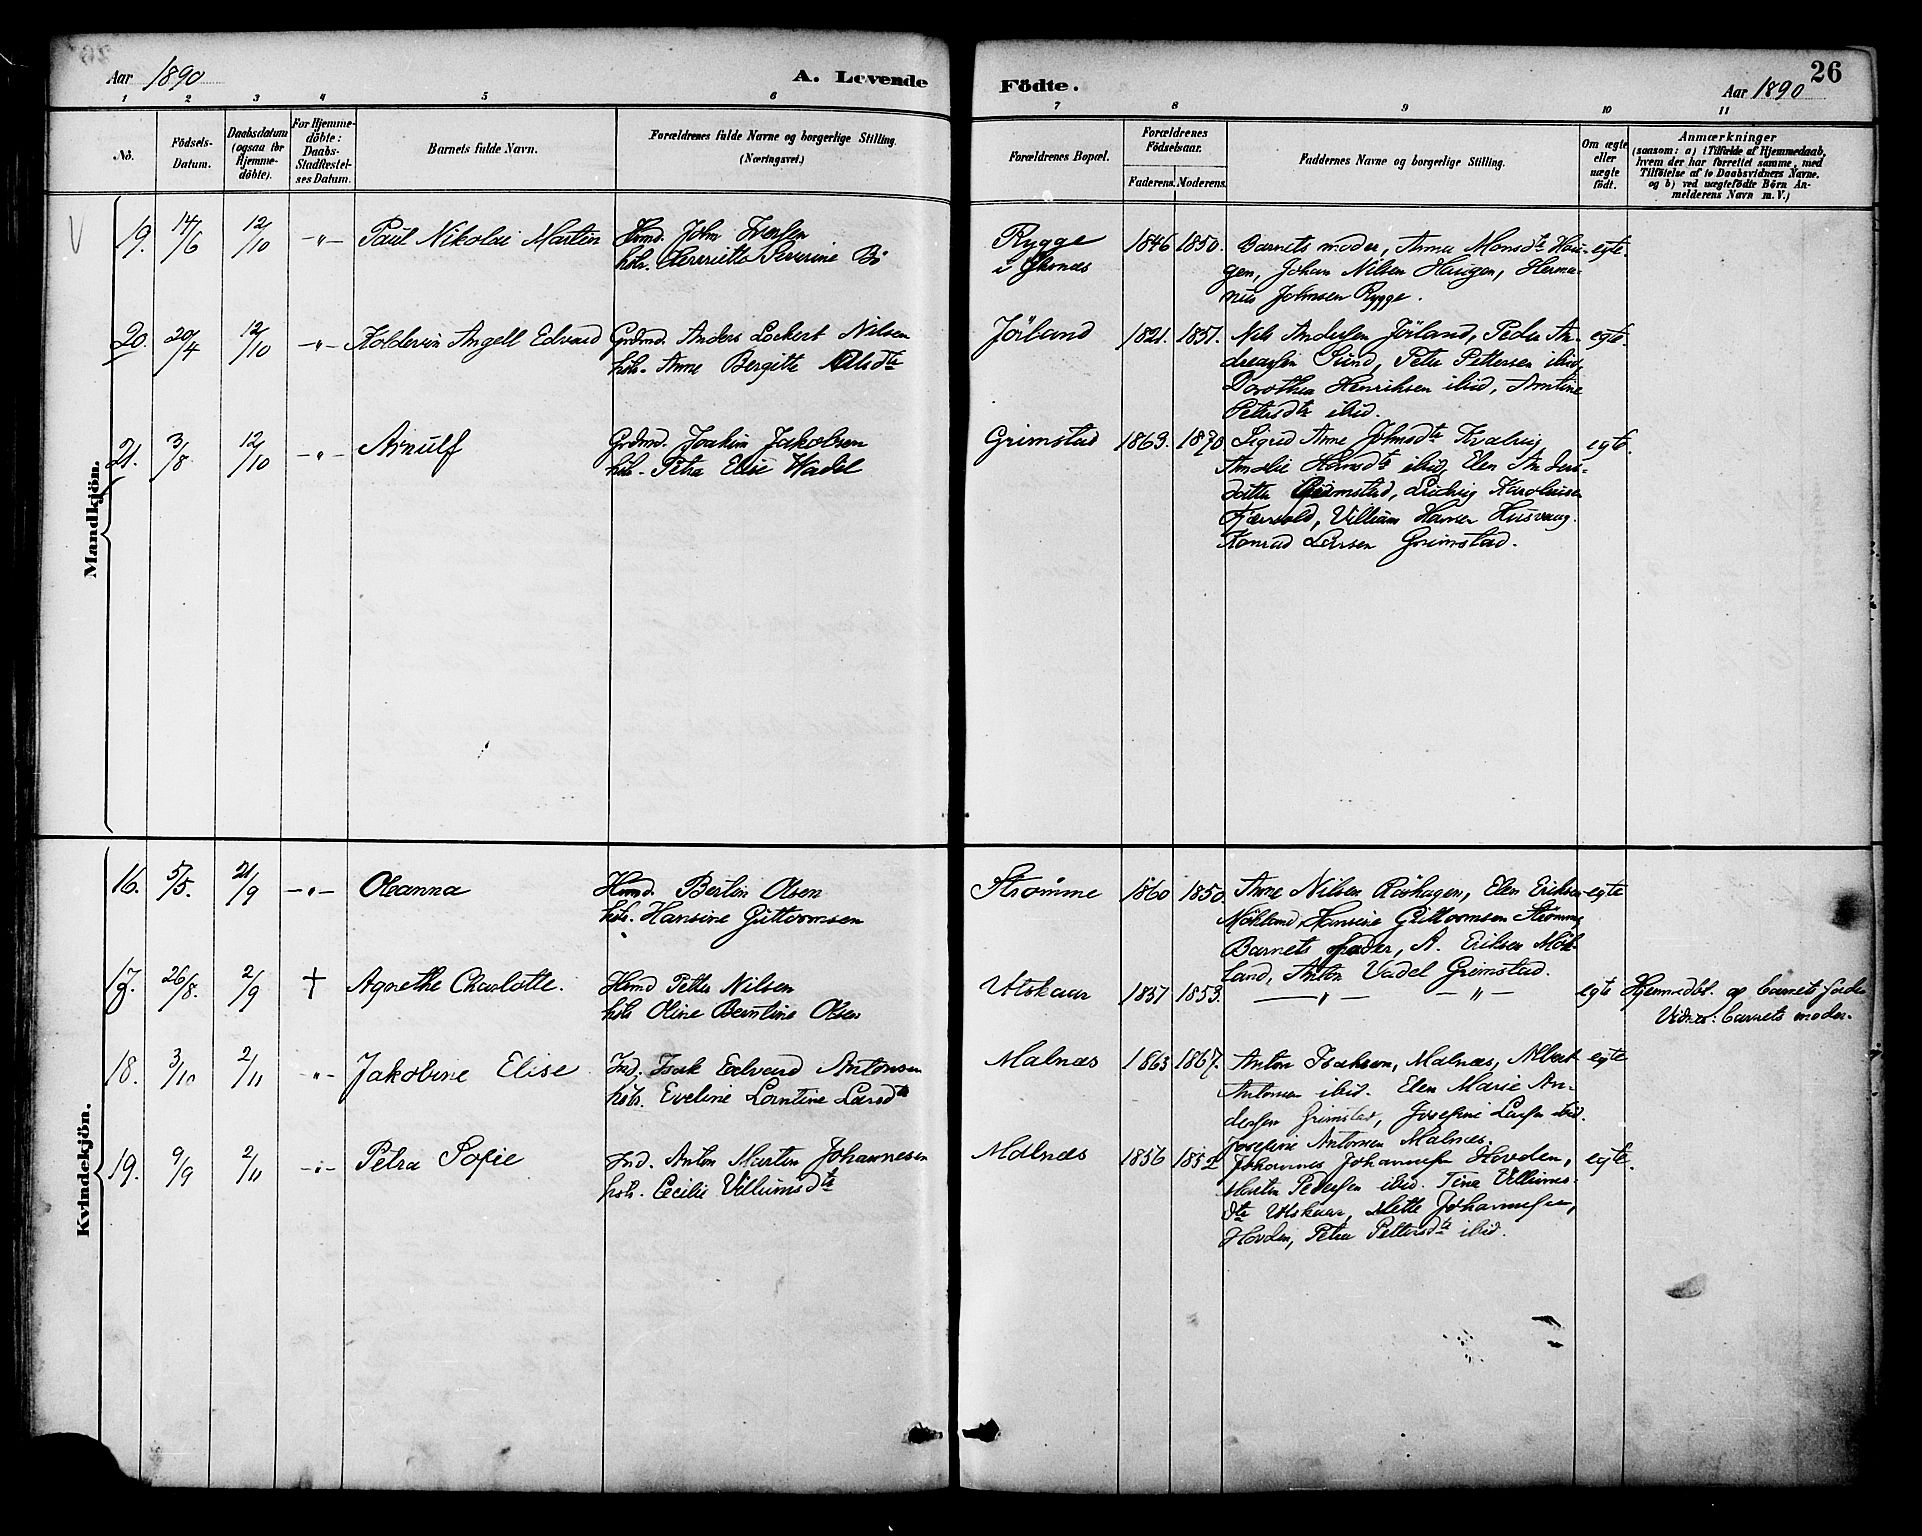 26
Aar 1890
A. Levende
Födte.
Aar 1890
1 2 3 4 5 6 7 8 9 10 11
No.
Födsels-
Datum.
Daabsdatum
(ogsaa for
Hjemme-
döbte).
For Hjemme-
döbte:
Daabs-
Stadfæstel-
ses Datum.
Barnets fulde Navn.
Forældrenes fulde Navne og borgerlige Stilling.
(Næringsvei.)
Forældrenes Bopæl.
Forældrenes
Födselsaar.
Faderens. Moderens.
Faddernes Navne og borgerlige Stilling.
Om ægte
eller
uægte
födt.
Anmærkninger
(saasom: a) i Tilfælde af Hjemmedaab,
hvem der har forrettet samme, med
Tilföielse af to Daabsvidners Navne.
og b) ved uægtefödte Börn An-
melderens Navn m. V.)
Mandkjön.
19. 14/6 12/10 -"- Paul Nikolai Martin
Hmd. John Iversen
hstr. Henriette Severine Bö
Rygge
i Skonæs
1846 1850.
Barnets moder, Anna Monsdtr Hau-
gen, Johan Nilsen Haugen, Herma-
nus Johnsen Rygge.
egte.
20. 20/4 12/10 -"- Koldevin Angell Edvard
Grdmd. Anders Lockert Nilsen
hstr. Anne Bergitte Nilsdtr
Jörland
1821. 1851.
Nils Andersen Jörland, Peder An-
dreassen Sund, Peter Pettersen ibid,
Dorothea Henriksen ibid, Amtine
Petersdtr ibid.
egte.
21. 3/8 12/10 -"- Arnulf
Grdmd. Joakim Jakobsen
hstr. Petra Elise Wadel
Grimstad
1863. 1870.
Sigrid Anne Johnsdtr Kvalvig
Amalie Hansdtr ibid, Elen Anders-
datter Grimstad, Ludvig Karolius
Fjærvold, Villiam Hansen Husvaag.
Konrad Larsen Grimstad.
egte.
Kvindekjön.
16. 5/5. 21/9 -"- Oleanna
Hmd. Bertin Olsen
hstr. Hansine Guttormsen
Strømme
1860 1850.
Anne Nilsen Roshagen, Elen Eriksen
Mökland, Hansine Guttormsen Strömme
Barnets fader, A. Eriksen Mök-
land, Anton Vadel Grimstad.
egte
17. 26/8. 2/9 † Agnethe Charlotte.
Hmd Petter Nilsen
hstr Oline Berntine Olsen
Utskaar
1857 1853.
-"- -"-
egte
Hjemmedbt. af barnets fader
Vidner: barnets moder.
18. 3/10 2/11 -"- Jakobine Elise
Ind. Isak Edvard Antonsen
hstr. Eveline Lorntine Larsdtr
Malnæs
1863 1867.
Anton Isaksen, Malnæs, Albert
Antonsen ibid. Elen Marie An-
dersen Grimstad, Josefine Larsen ibid.
Josefine Antonsen Malnæs.
egte
19. 9/9 2/11 -"- Petra Sofie
Ind. Anton Martin Johannesen
hstr. Cecilie Villiumsdtr
Malnæs
1856 1852
Johannes Johannesen Hovden,
Martin Pedersen ibid. Tina Villiums-
dtr Utskaar, Mette Johannesen,
Hovden, Petra Pettersdtr ibid.
egte.